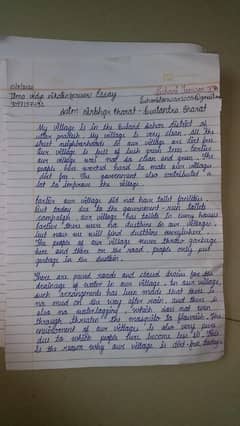 Essay
Atm Nirbhar Bharat - Swatantra Bharat
My village is in the Buland Sahar district of
Uttar pradesh. My village is very clean. All the
street neighborhoods in our village are dirt free.
Our village is full of lush green trees. Earlier
our village was not so clean and green. The
people have worked hard to make our village
dirt free. The government also contributed a
lot to improve the village.
Earlier our village did not have toilet facilities
but today due to the government - run toilets
campaign, our village has toilets in every house.
Earlier there were no dustbins in our village,
but now we will find dustbins everywhere.
The people of our village never throw garbage
here and there on the road people only put
garbage in the dustbin.
There are paved roads and closed drains for the
drainage of water in our village. In our village,
such arrangements has been made that there is
no mud on the way after rain, and there is
also no waterlogging. Which does not even
through threaten the mosquitor to flourish. The
environment of our village is also very pure
due to which people here become less ill. This
is the reason why our village is dirt-free today.